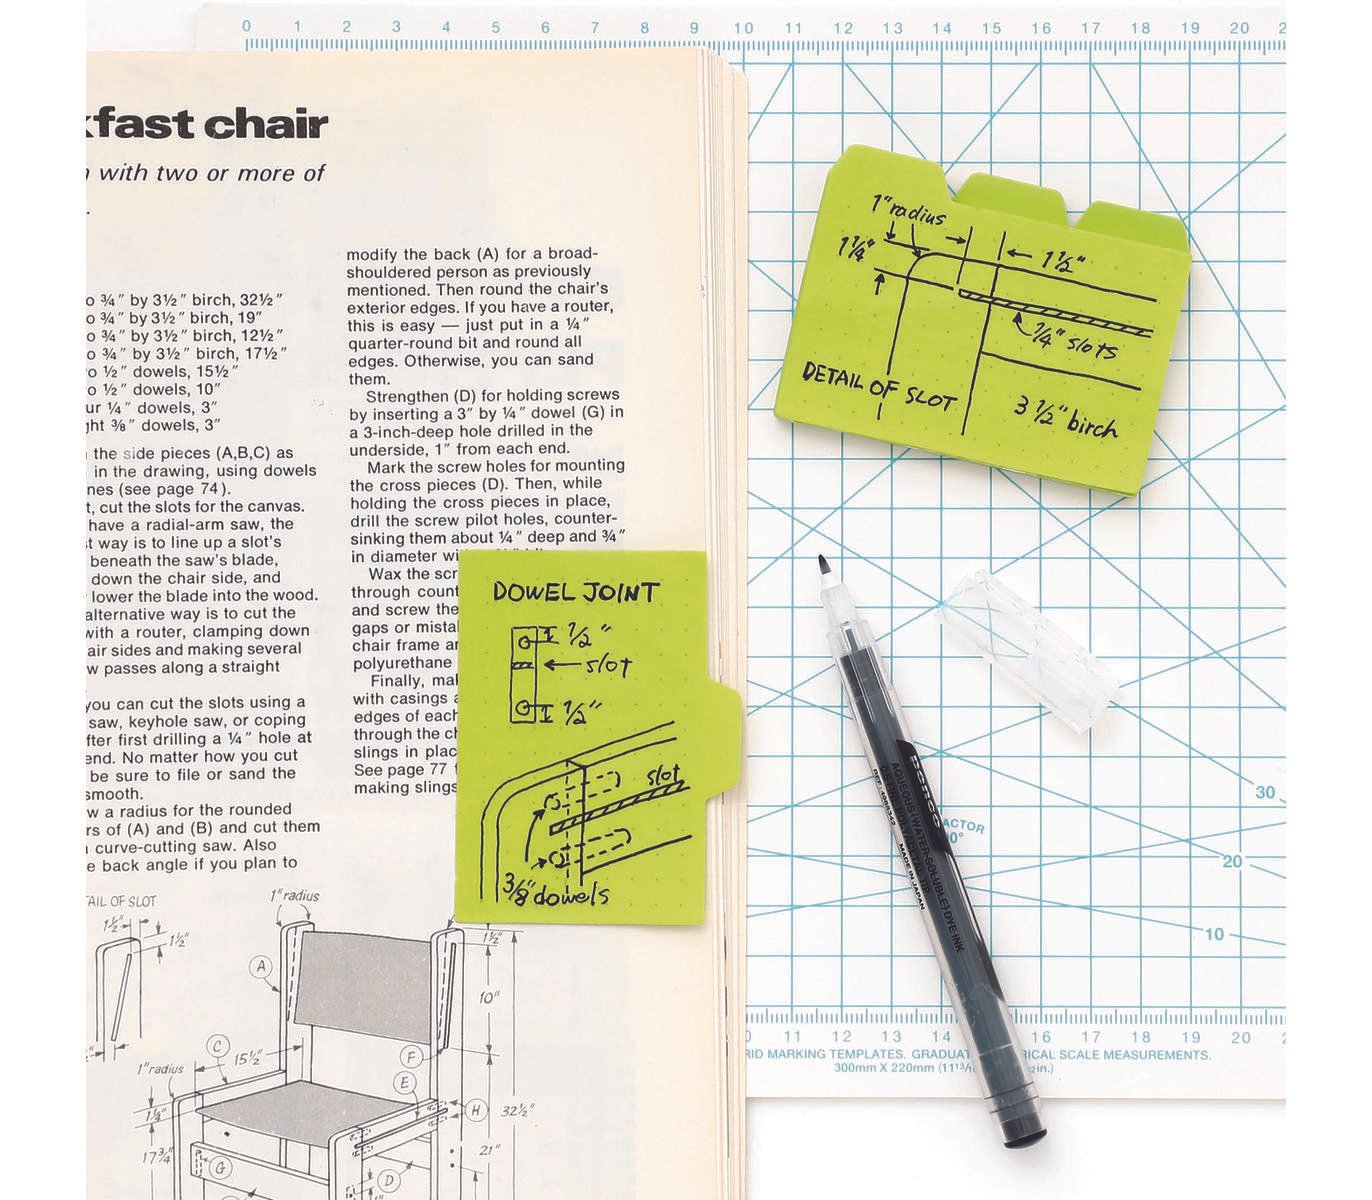 0 1 2 3 4 5 6 7 8 9 10 11 12 13 14 15 16 17 18 19 20
fast chair
with two or more of
¾″ by 3½″ birch, 32½″
¾″ by 3½″ birch, 19″
¾″ by 3½″ birch, 12½″
¾″ by 3½″ birch, 17½″
½″ dowels, 15½″
½″ dowels, 10″
¼″ dowels, 3″
⅜″ dowels, 3″
the side pieces (A,B,C) as
in the drawing, using dowels
(see page 74).
cut the slots for the canvas.
have a radial-arm saw, the
way is to line up a slot's
beneath the saw's blade,
down the chair side, and
lower the blade into the wood.
alternative way is to cut the
with a router, clamping down
sides and making several
passes along a straight
you can cut the slots using a
saw, keyhole saw, or coping
after first drilling a ¼″ hole at
end. No matter how you cut
be sure to file or sand the
smooth.
a radius for the rounded
of (A) and (B) and cut them
curve-cutting saw. Also
back angle if you plan to
modify the back (A) for a broad-
shouldered person as previously
mentioned. Then round the chair's
exterior edges. If you have a router,
this is easy — just put in a ¼″
quarter-round bit and round all
edges. Otherwise, you can sand
them.
Strengthen (D) for holding screws
by inserting a 3″ by ¼″ dowel (G) in
a 3-inch-deep hole drilled in the
underside, 1″ from each end.
Mark the screw holes for mounting
the cross pieces (D). Then, while
holding the cross pieces in place,
drill the screw pilot holes, counter-
sinking them about ¼″ deep and ¾″
in diameter
Wax the
through
and screw the
gaps or
chair frame
polyurethane
Finally,
with casings
edges of each
through the
slings in
See page 77
making slings
DETAIL OF SLOT
1½″
1½″
1″ radius
A
1½″
10″
C
15½″
F
E
H
1″ radius
1¼″
32½″
17¾″
21″
G
D
1″
DOWEL JOINT
½″
slot
½″
slot
⅜″ dowels
1″ radius
1¼″
1½″
¼″ slots
DETAIL OF SLOT
3½″ birch
AQUEOUS (WATER-SOLUBLE) DYE INK
MADE IN JAPAN
30
20
10
11 12 13 14 16 17 18 19 20
MARKING TEMPLATES. SCALE MEASUREMENTS.
300mm X 220mm